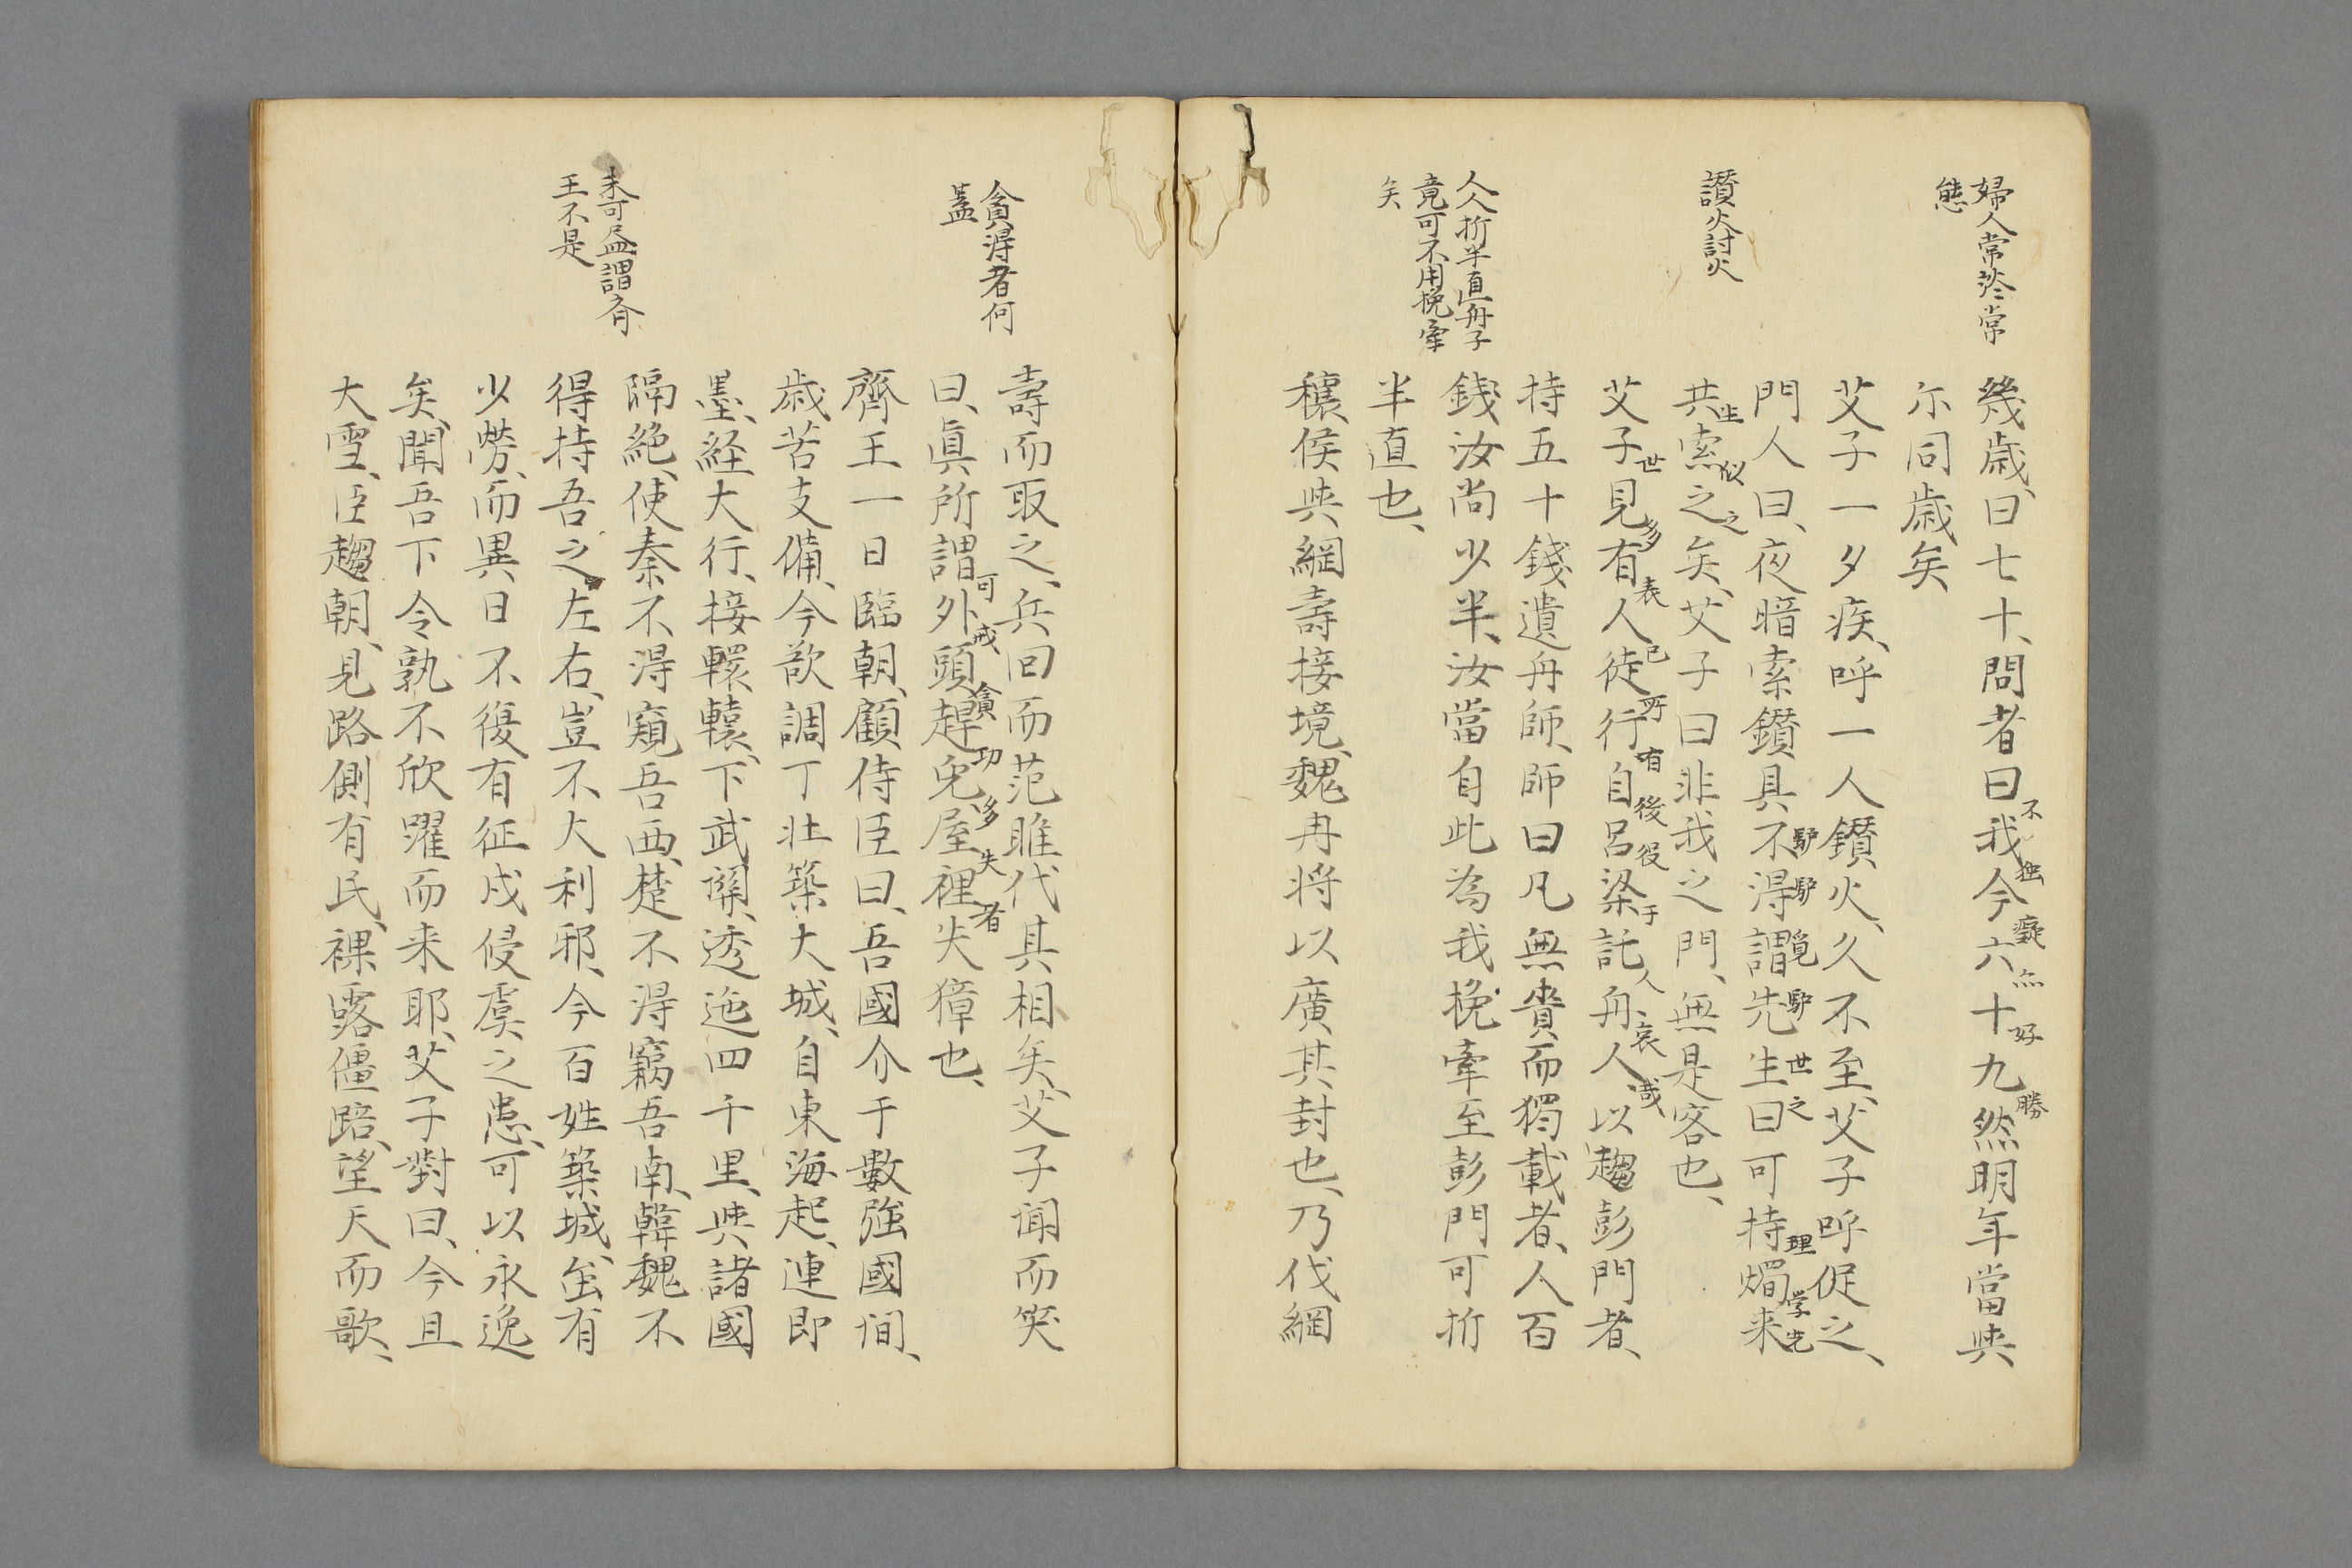 婦人常態常
態
幾歳、曰七十、問者曰我今六十九然明年當與
不独癡亦好勝
尓同歳矣
讃火討火
艾子一夕疾、呼一人鑚火、久不至、艾子呼促之、
門人曰、夜暗索鑚具不得謂先生曰可持燭来
驴驴覓驴世之理学先
共索之矣、艾子曰非我之門、無是客也、
生似之
艾子見有人徒行自呂梁託舟人以趨彭門者、
世多表已所有後役于人哀哉
持五十錢遺舟師、師曰凡無賫而獨載者、人百
人人折半直舟子
竟可不用挽牽
矣
錢汝尚少半、汝當自此為我挽牽至彭門可折
半直也、
穰侯與綱壽接境、魏冉将以廣其封也、乃伐綱
壽而取之、兵回而范雎代其相矣、艾子闻而笑
貪得者何
蓋
曰、眞所謂外頭趕兔屋裡失獐也、
可戒貪功多失者
齊王一日臨朝、顧侍臣曰、吾國介于數强國间、
歳苦支備、今欲調丁壯築大城、自東海起、連即
墨、経大行、接轘轅、下武関、透迤四千里、與諸國
隔絶、使秦不得窺吾西、楚不得竊吾南、韓魏不
未可盡謂齊
王不是
得持吾之左右、豈不大利邪、今百姓築城、虽有
少勞、而異日不復有征戍侵虞之患、可以永逸
矣、聞吾下令孰不欣躍而来耶、艾子對曰、今旦
大雪、臣趨朝、見路側有民、裸露僵踣、望天而歌、